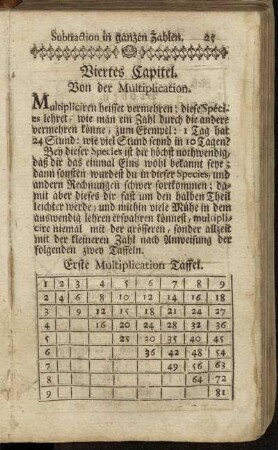 Subtraction in gantzen Zahlen. 25
Viertes Capitel.
Von der Multiplication.
Multipliciren heisset vermehren: diese Speci-
es lehret, wie man ein Zahl durch die andere
vermehren könne, zum Exempel: 1 Tag hat
24 Stund: wie viel Stund seynd in 10 Tagen?
Bey dieser Species ist dir höchst nothwendig,
daß dir das einmal Eins wohl bekannt seye;
dann sonsten wurdest du in dieser Species, und
andern Rechnungen schwer fortkommen; da-
mit aber dieses dir fast um den halben Theil
leichter werde, und mithin viele Mühe in dem
auswendig lehren ersparen könnest, multipli-
cire niemal mit der grösseren, sonder allzeit
mit der kleineren Zahl nach Anweisung der
folgenden zwey Taffeln.
Erste Multiplication Taffel.
1 2 3 4 5 6 7 8 9
2 4 6 8 10 12 14 16 18
3 9 12 15 18 21 24 27
4 16 20 24 28 32 36
5 25 30 35 40 45
6 36 42 48 54
7 49 56 63
8 64 72
9 81